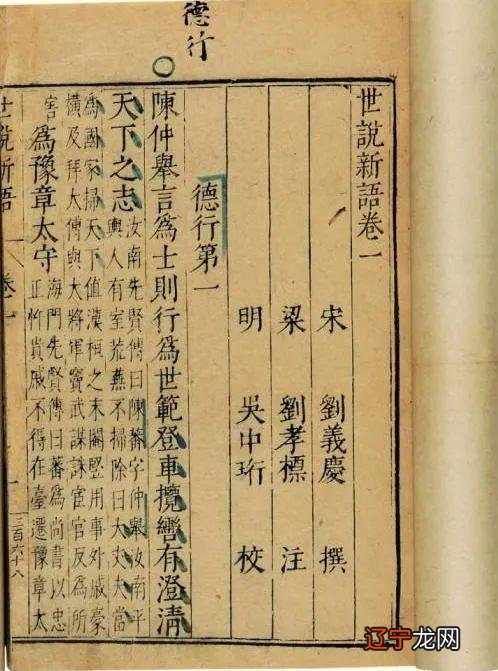 德行
世說新語卷一
宋 劉義慶 撰
梁 劉孝標 注
明 吳中珩 校
德行第一
陳仲舉言爲士則行爲世範登車攬轡有澄清
天下之志
汝南先賢傳曰陳蕃字仲舉汝南平
輿人有室荒蕪不掃除曰大丈夫當
爲國家掃天下值漢桓之末閹豎用事外戚豪
橫及拜太傅與大將軍竇武謀誅宦官反爲所
害
爲豫章太守
海內先賢傳曰蕃爲尚書以忠
正忤貴戚不得在臺遷豫章太
世說新語 卷一 一 三百六十八
辽宁龙网